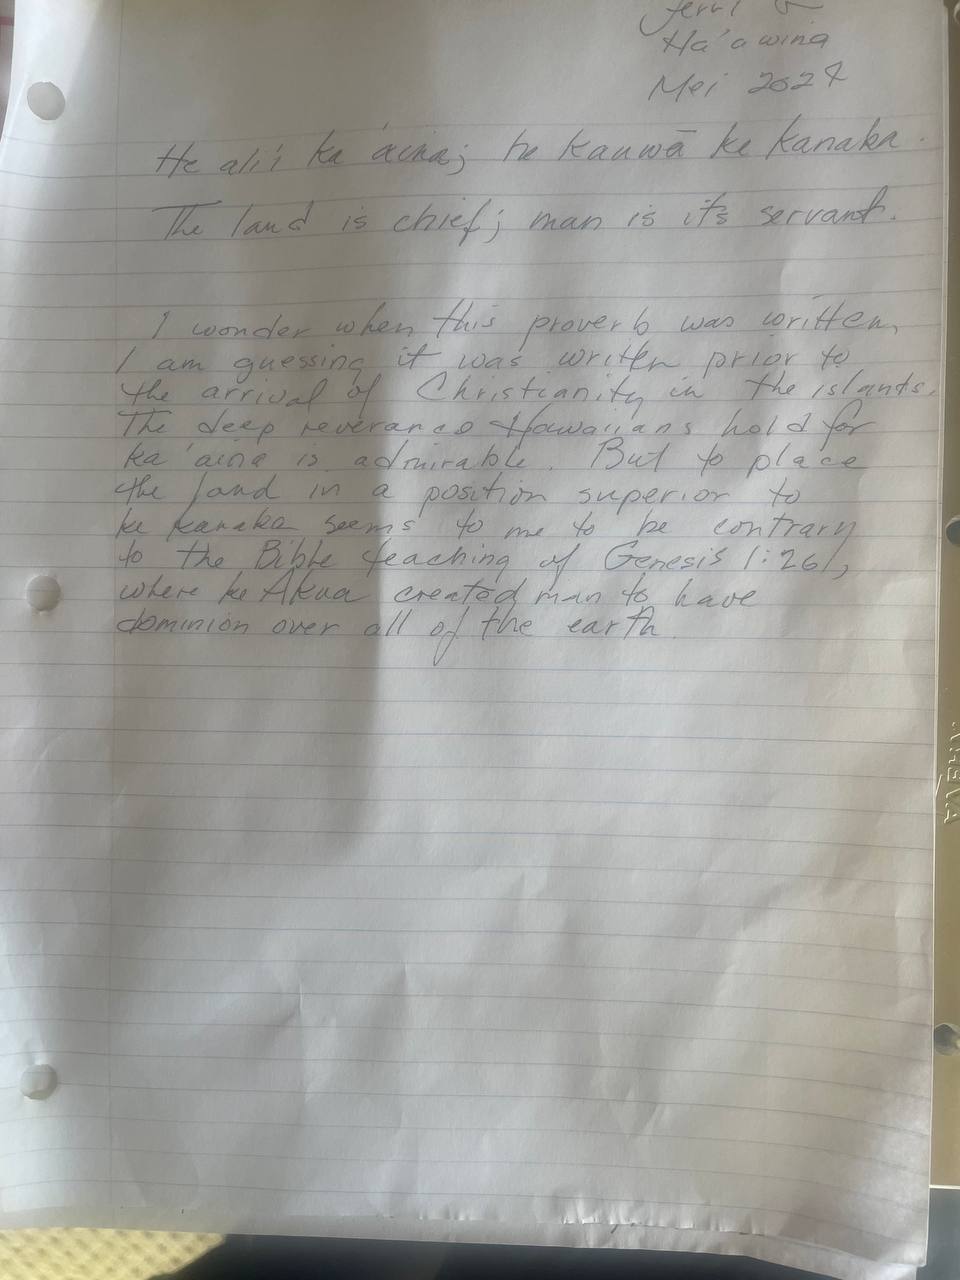 Ha'awina
Mei 2024
He ali'i ka 'āina; he kauwā ke kanaka.
The land is chief; man is its servant.
I wonder when this proverb was written,
I am guessing it was written prior to
the arrival of Christianity in the islands.
The deep reverance Hawaiians hold for
ka 'aina is admirable. But to place
the land in a position superior to
ke kanaka seems to me to be contrary
to the Bible teaching of Genesis 1:26,
where ke Akua created man to have
dominion over all of the earth.